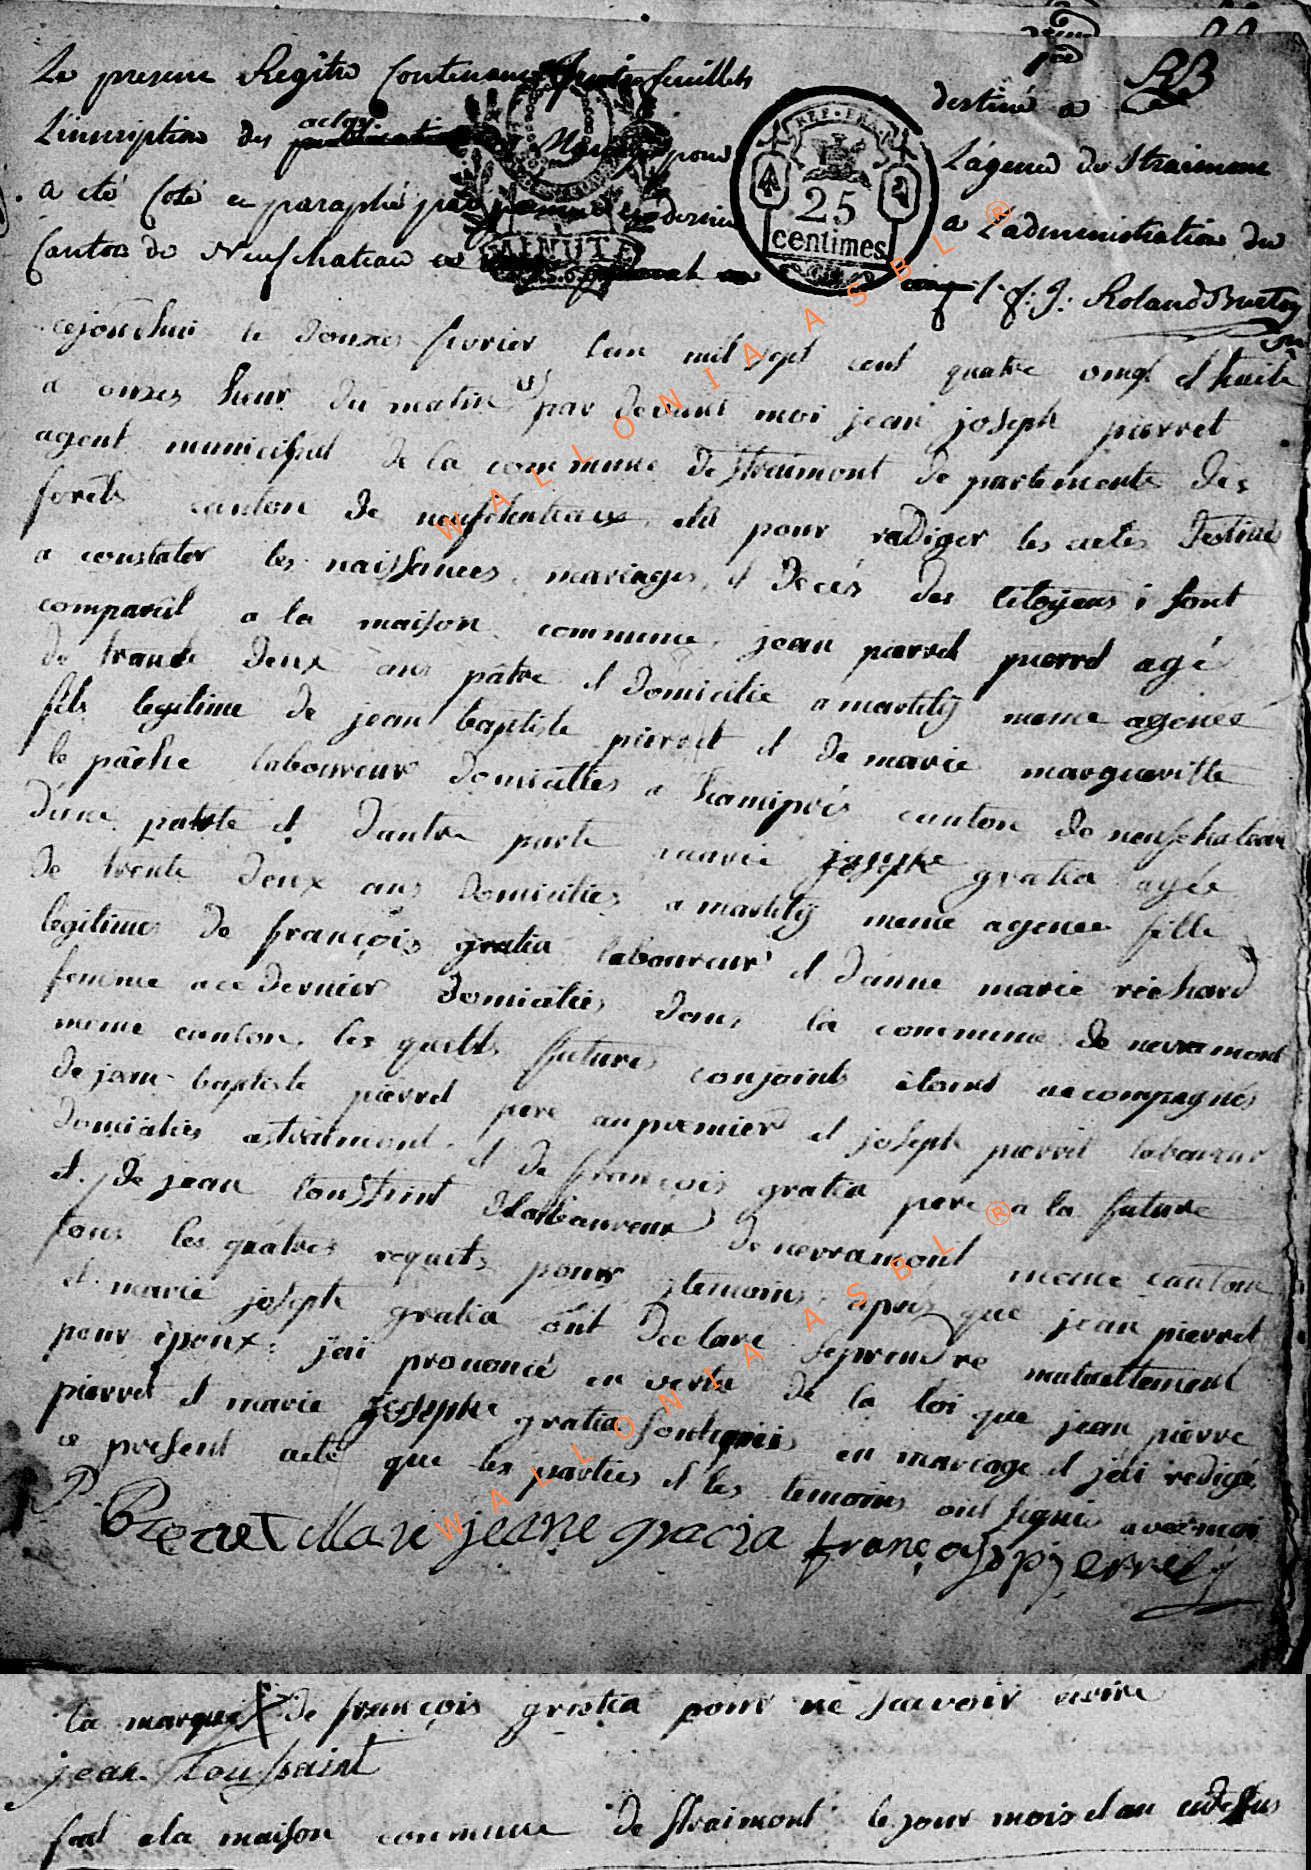 Le present Registre Contenant feuillets destiné a
L'inscription des actes pour L'agence de Straimont
a eté Coté et paraphé par dernier a L'administration du
Canton de Neufchateau ce f. J. Roland Burton
REP. FRA.
25
centimes
MINUTE
cejourdhui le douxes fevrier l'an mil sept cent quatre vingt et huite
a onzes heur du matin par devant moi jean joseph pierret
agent municipal de la commune de straimont de partements des
forêts canton de neufchateaux elú pour rediger les actes destinés
a constater les naissances, mariages, et decés des citoyens i sont
comparût a la maison commune, jean pierret agé
de trante deux ans pâtre et domicilié a martilÿ meme agence
fils legitime de jean baptiste pierret et de marie margueritte
le pâche laboureur domiciliés a hamiprés canton de neufchateau
d'une parte et d'autre parte marie josephe gratia agée
de trente deux ans domiciliés a martilÿ meme agence fille
legitimes de françois gratia laboureur et d'anne marie richard
femme a ce dernier domiciliés dans la commune de nevramont
meme canton, les quells futures conjoints étant accompagnés
de jean-baptiste pierret pere au premier et joseph pierret laboureur
domiciliés a straimont, et de françois gratia pere a la future
et de jean toussaint laboureur de nevramont meme canton
tous les quâtres requits pour temoins, apres que jean pierret
et marie joseph gratia ont declaré se prendre mutuellement
pour époux, j'ai prononcé en vertu de la loi que jean pierre
pierret et marie josephe gratia sont unis en mareage et j'ai redigé
ce present acte que les parties et les temoins ont signés avec moi
P. Pieret Marie jeane gracia françois pierret
la marque X de françois gratia pour ne scavoir ecrire
jean toussaint
fait a la maison commune de straimont le jour mois et an cidessus
WALLONIA ASBL ®
WALLONIA ASBL ®